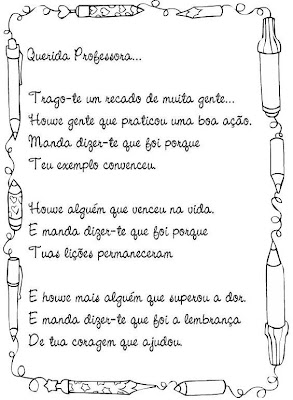 Querida Professora...
Trago-te um recado de muita gente...
Houve gente que praticou uma boa ação.
Manda dizer-te que foi porque
Teu exemplo convenceu.
Houve alguém que venceu na vida.
E manda dizer-te que foi porque
Tuas lições permaneceram
E houve mais alguém que superou a dor.
E manda dizer-te que foi a lembrança
De tua coragem que ajudou.